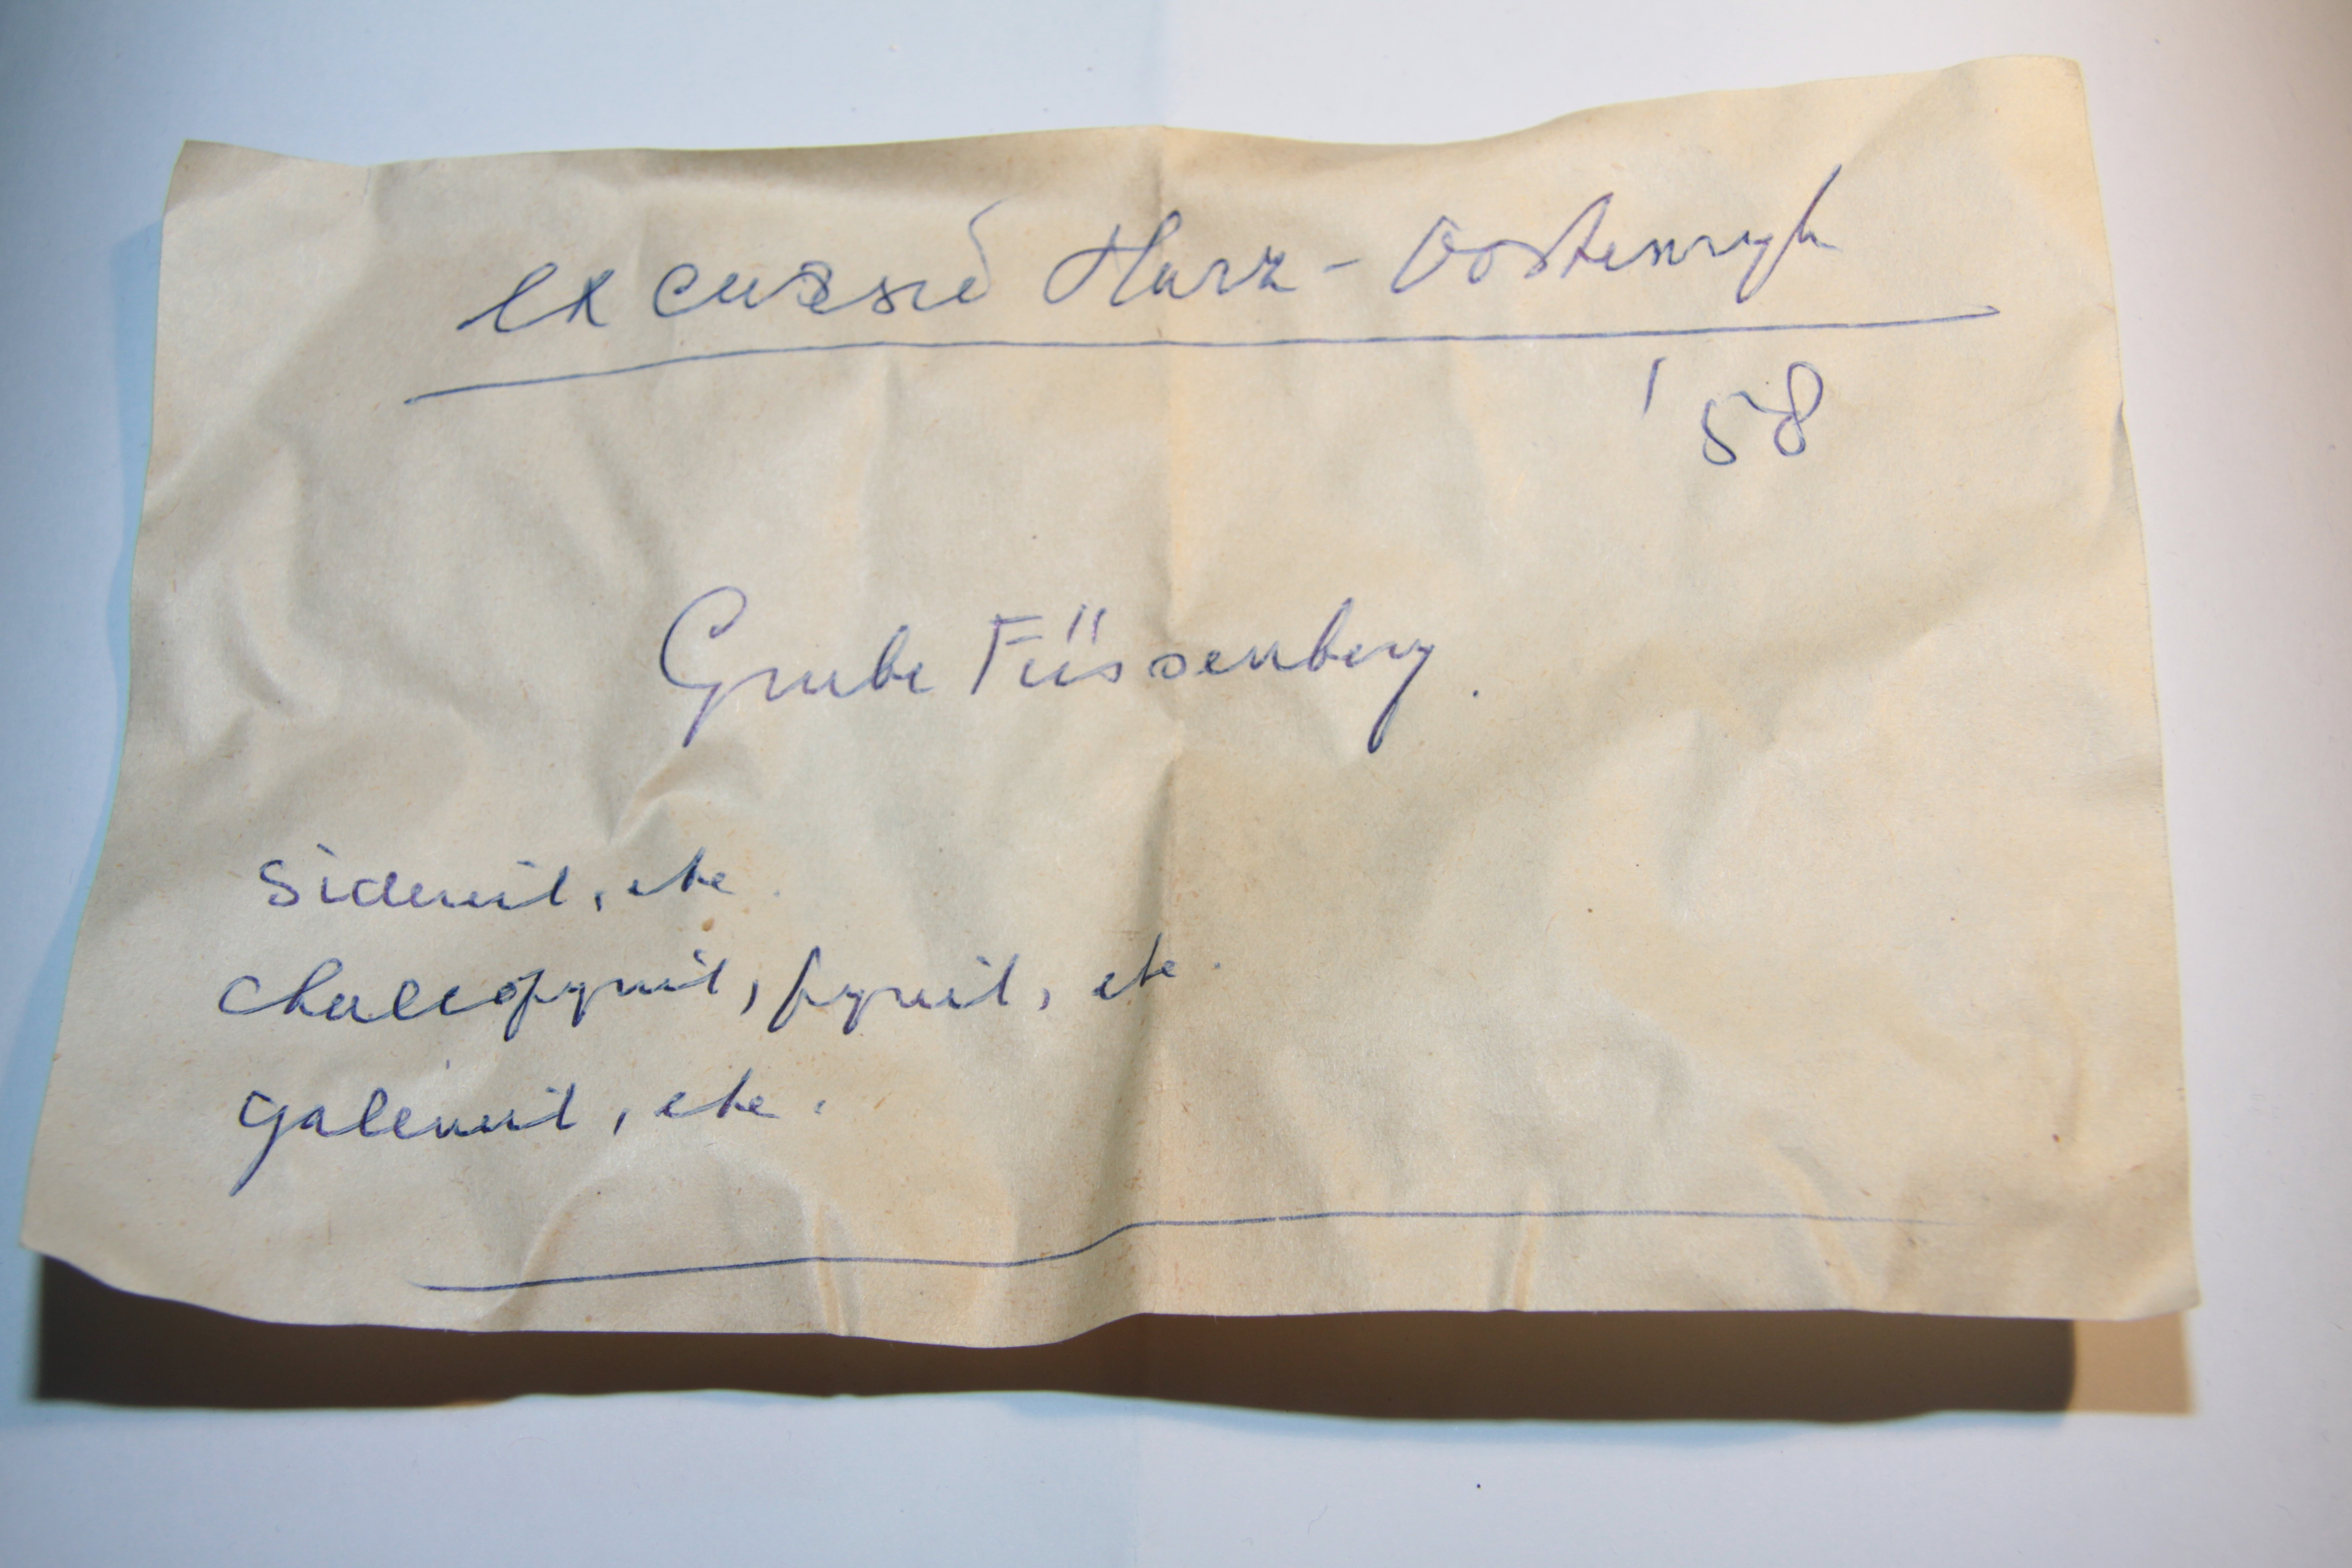 excursie Harz - Oostenryk
'58
Grube Füssenberg.
Sideriit, etc.
chalcopyriet, pyriet, etc.
galeniet, etc.